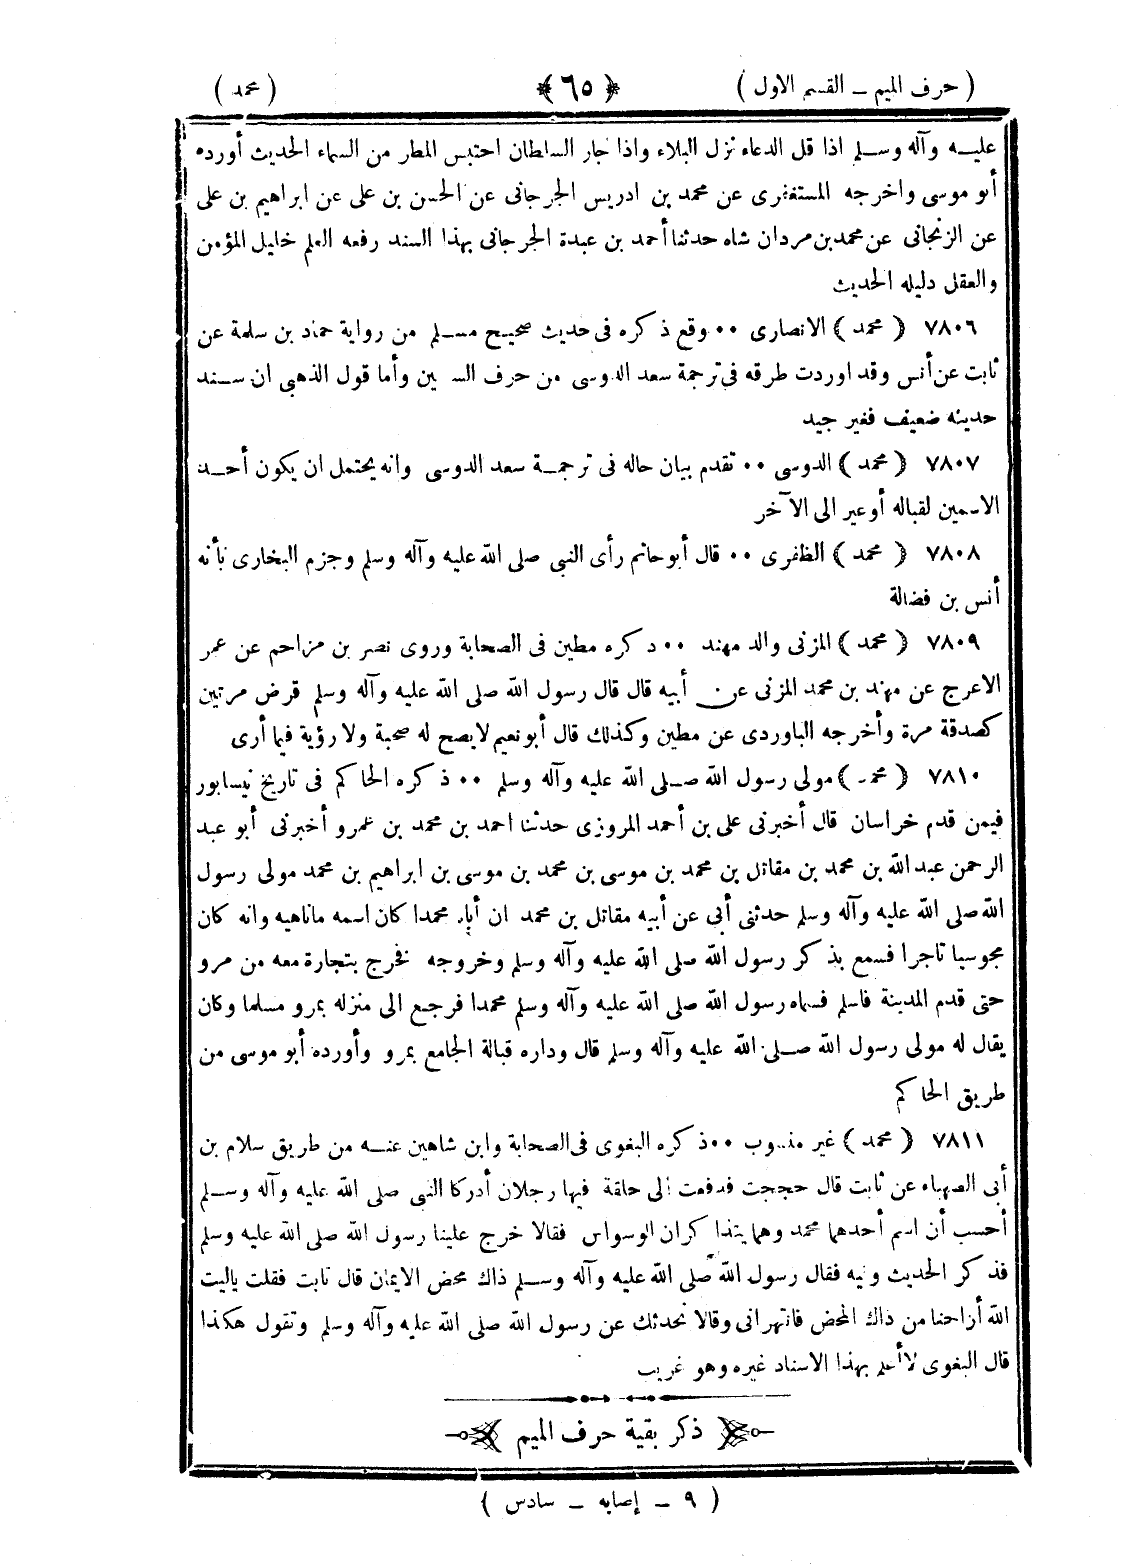 ( حرف الميم ــ القسم الاول ) ﴿ ٦٥ ﴾ ( محمد )
عليــه وآله وســلم اذا قل الدعاء نزل البلاء واذا جار السلطان احتبس المطر من السماء الحديث أورده
أبو موسى واخرجه المستغفرى عن محمد بن ادريس الجرجانى عن الحسن بن على عن ابراهيم بن على
عن الزنجانى عن محمد بن مردان شاه حدثنا أحمد بن عبدة الجرجانى بهذا السند رفعه العلم خليل المؤمن
والعقل دليله الحديث
٧٨٠٦ ( محمد ) الانصارى ٠٠ وقع ذكره فى حديث صحيح مسـلم من رواية حماد بن سلمة عن
ثابت عن أنس وقد اوردت طرقه فى ترجمة سعد الدوسى من حرف السـين وأما قول الذهبى ان ســند
حديثه ضعيف فغير جيد
٧٨٠٧ ( محمد ) الدوسى ٠٠ تقدم بيان حاله فى ترجمـة سعد الدوسى وانه يحتمل ان يكون أحــد
الاسمين لقباله أوغير الى الآخر
٧٨٠٨ ( محمد ) الظفرى ٠٠ قال أبوحاتم رأى النبى صلى الله عليه وآله وسلم وجزم البخارى بأنه
أنس بن فضالة
٧٨٠٩ ( محمد ) المزنى والد مهند ٠٠ ذكره مطين فى الصحابة وروى نصر بن مزاحم عن عمر
الاعرج عن مهند بن محمد المزنى عن أبيه قال قال رسول الله صلى الله عليه وآله وسلم قرض مرتين
كصدقة مرة وأخرجه الباوردى عن مطين وكذلك قال أبونعيم لايصح له صحبة ولا رؤية فيما أرى
٧٨١٠ ( محمد ) مولى رسول الله صـلى الله عليه وآله وسلم ٠٠ ذكره الحاكم فى تاريخ نيسابور
فيمن قدم خراسان قال أخبرنى على بن أحمد المروزى حدثنا احمد بن محمد بن عمرو أخبرنى أبو عبد
الرحمن عبد الله بن محمد بن مقاتل بن محمد بن موسى بن محمد بن موسى بن ابراهيم بن محمد مولى رسول
الله صلى الله عليه وآله وسلم حدثنى أبى عن أبيه مقاتل بن محمد ان أباه محمدا كان اسمه ماناهيه وانه كان
مجوسيا تاجرا فسمع بذكر رسول الله صلى الله عليه وآله وسلم وخروجه فخرج بتجارة معه من مرو
حتى قدم المدينة فاسلم فسماه رسول الله صلى الله عليه وآله وسلم محمدا فرجع الى منزله بمرو مسلما وكان
يقال له مولى رسول الله صــلى الله عليه وآله وسلم قال وداره قبالة الجامع بمرو وأورده أبو موسى من
طريق الحاكم
٧٨١١ ( محمد ) غير منسوب ٠٠ ذكره البغوى فى الصحابة وابن شاهين عنــه من طريق سلام بن
أبى الصهباء عن ثابت قال حججت فدفعت الى حلقة فيها رجلان أدركا النبى صلى الله عليه وآله وســلم
أحسب أن اسم أحدهما محمد وهما يتذاكران الوسواس فقالا خرج علينا رسول الله صلى الله عليه وسلم
فذكر الحديث وفيه فقال رسول الله صلى الله عليه وآله وســلم ذاك محض الايمان قال ثابت فقلت ياليت
الله أزاحنا من ذاك المحض فانتهرانى وقالا نحدثك عن رسول الله صلى الله عليه وآله وسلم وتقول هكذا
قال البغوى لاأعلم بهذا الاسناد غيره وهو غريب
ذكر بقية حرف الميم
( ٩ ــ إصابه ــ سادس )